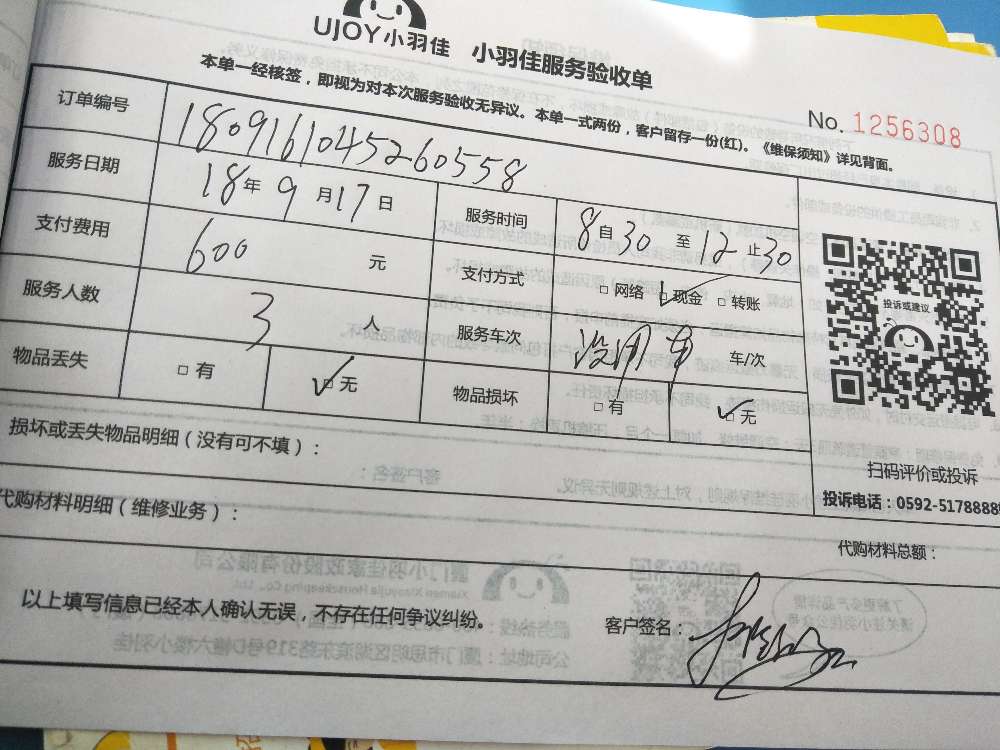 UJOY小羽佳 小羽佳服务验收单
本单一经核签，即视为对本次服务验收无异议。本单一式两份，客户留存一份(红)。《维保须知》详见背面。
No. 1256308
订单编号 1809161045260558
服务日期 18年9月17日 服务时间 8自30至12止30
支付费用 600元 支付方式 □网络 □现金 □转账
服务人数 3人 服务车次 没用车 车/次
物品丢失 □有 ☑无 物品损坏 □有 ☑无
投诉或建议
扫码评价或投诉
投诉电话：0592-5178888
损坏或丢失物品明细（没有可不填）：
代购材料明细（维修业务）：
代购材料总额：
以上填写信息已经本人确认无误，不存在任何争议纠纷。
客户签名：